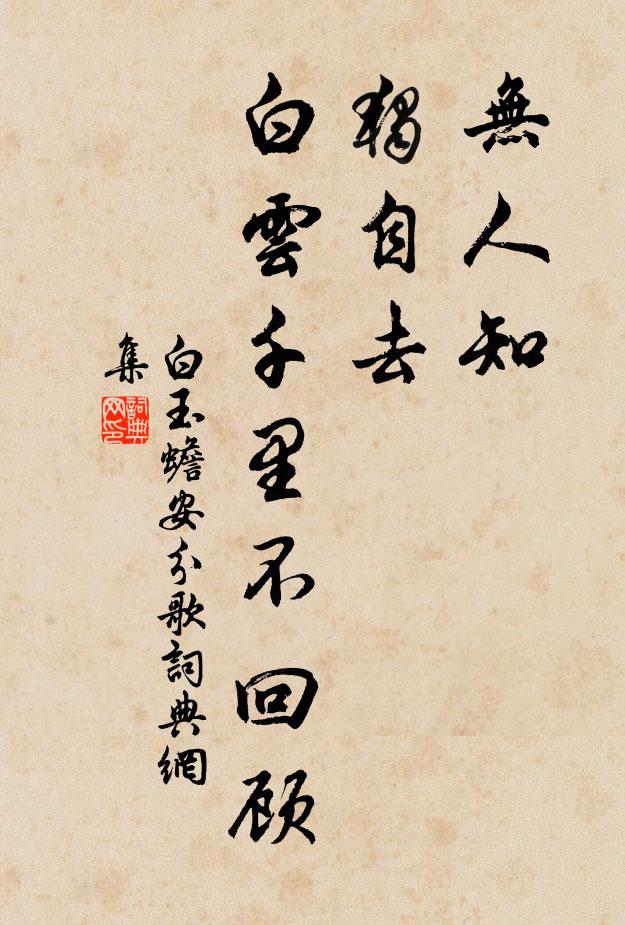 無人知
獨自去
白雲千里不回顾
白玉蟾安分歌詞典網
集
詞典
网印